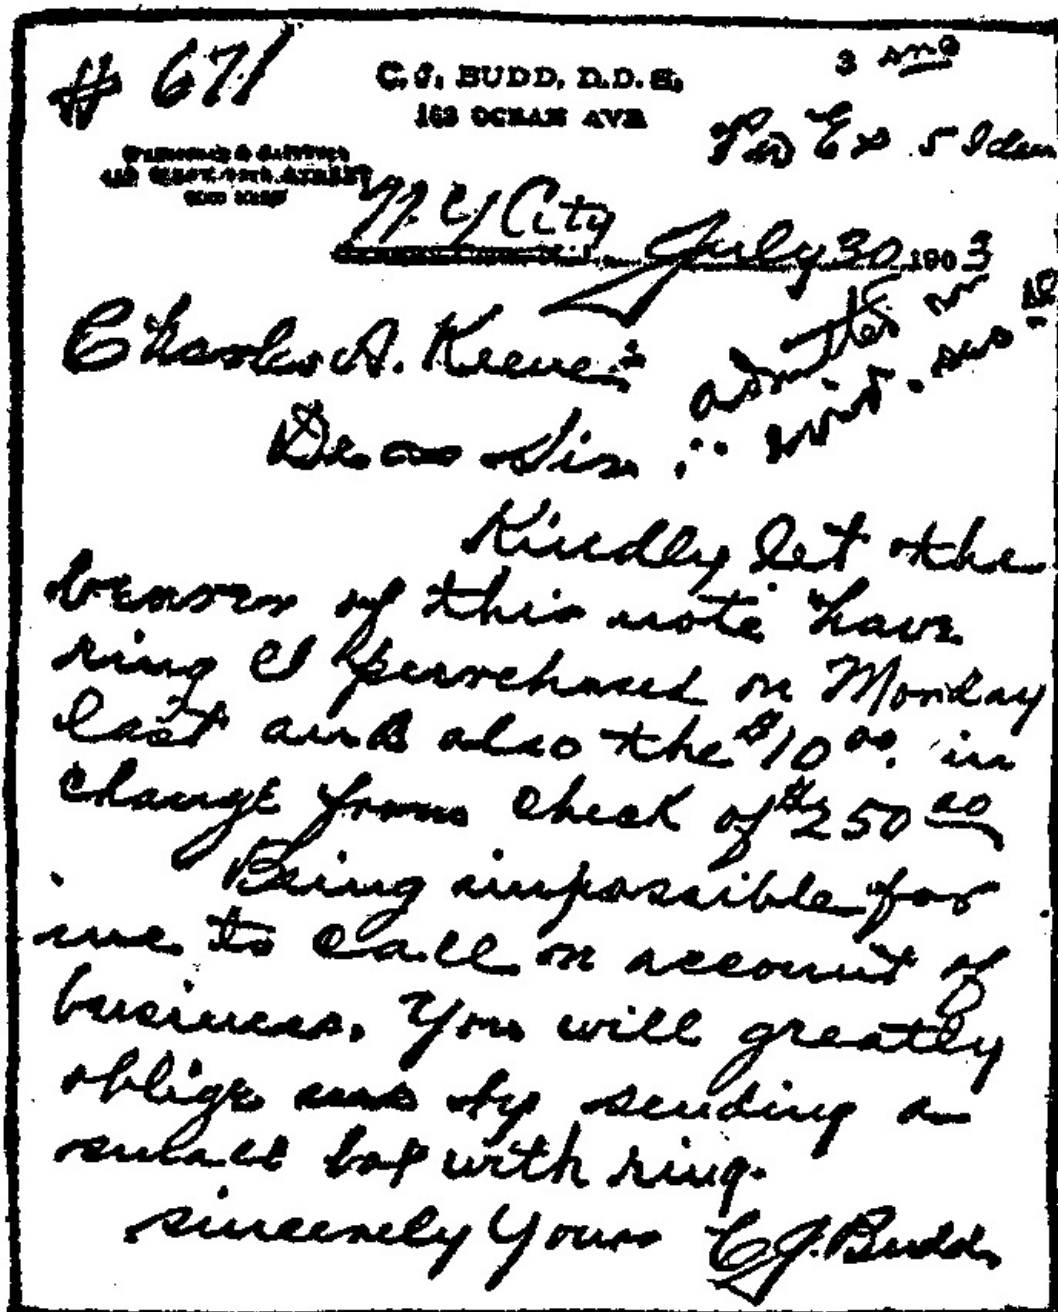 # 671
C. J. BUDD, D.D.S.
163 OCEAN AVE
Ex 5 Iden
STREET
N. Y City July 30 1903
Charles A. Keene:
Dear Sir:
Kindly let the
bearer of this note have
ring I purchased on Monday
last and also the $10 00. in
change from check of $250 00
Being impossible for
me to call on account of
business. You will greatly
oblige me by sending a
small box with ring.
Sincerely Yours C J. Budd.